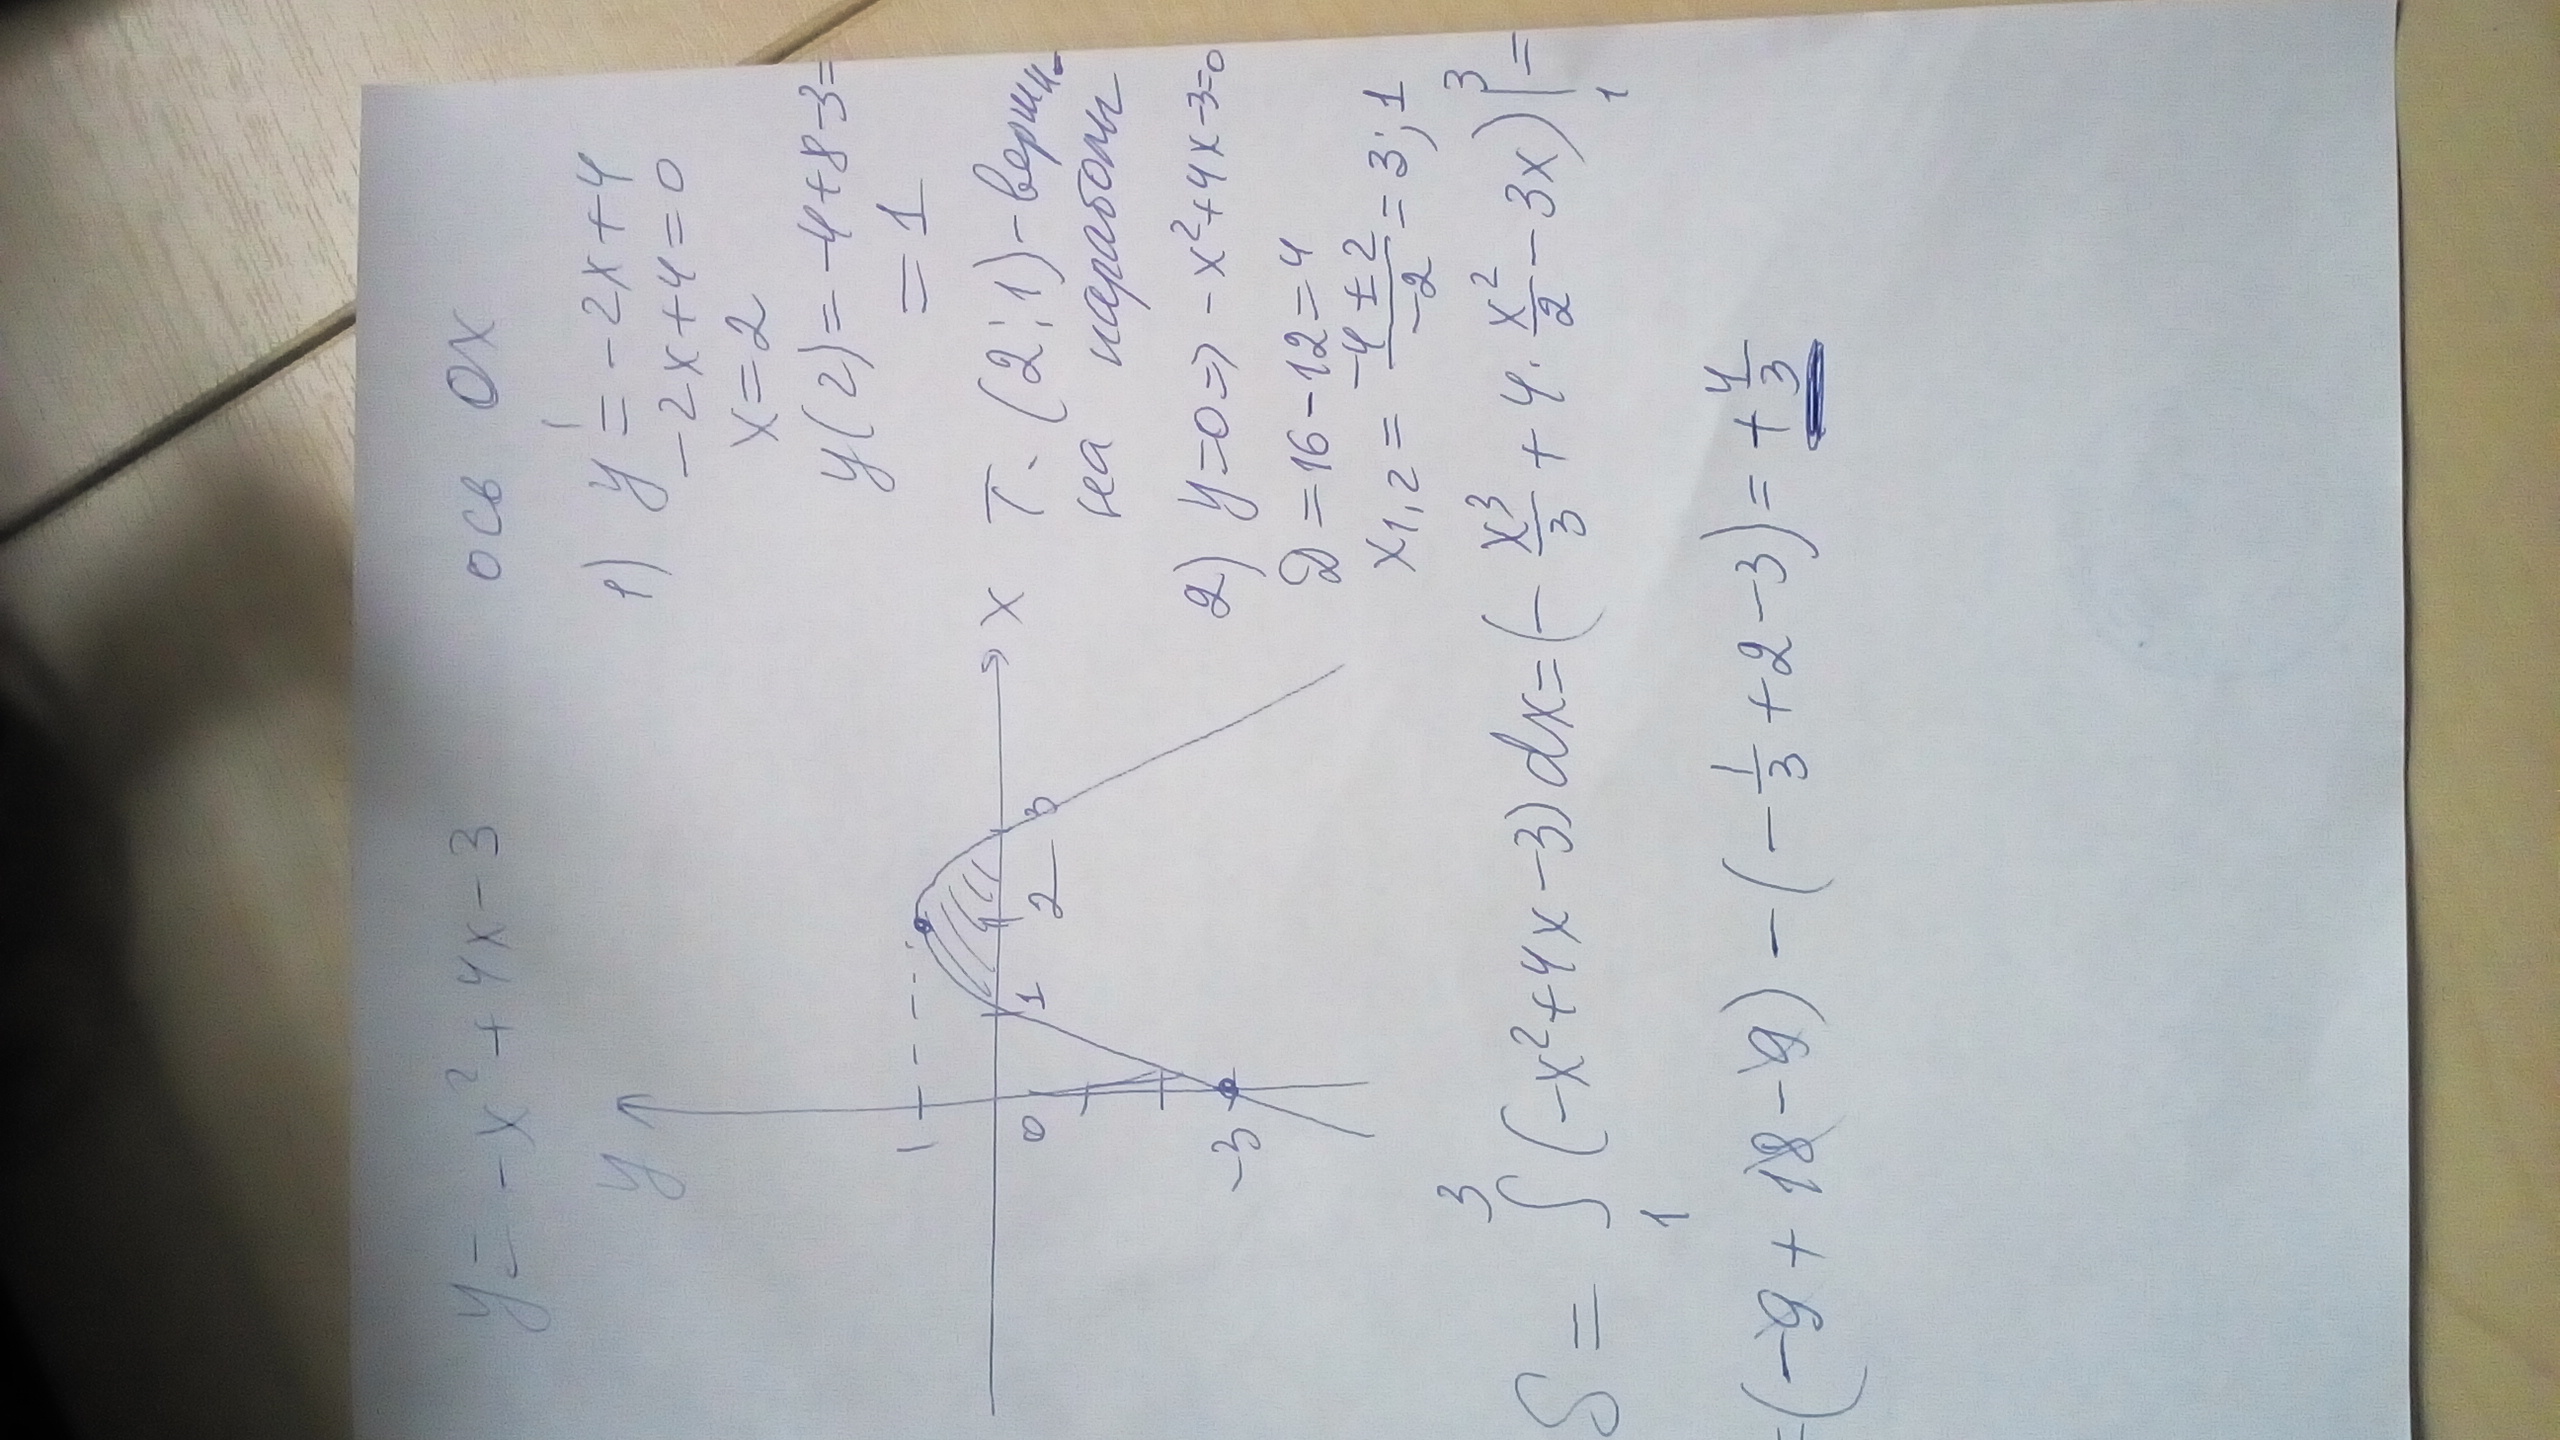 y = -x² + 4x - 3 ось OX
1) y' = -2x + 4
-2x + 4 = 0
x = 2
y(2) = -4 + 8 - 3 =
= 1
т. (2; 1) - верши-
на параболы
2) y = 0 => -x² + 4x - 3 = 0
D = 16 - 12 = 4
x1,2 = (-4 ± 2)/(-2) = 3; 1
y
1
0
1
2
3
x
-3
S = ∫₁³ (-x² + 4x - 3) dx = (-x³/3 + 4 · x²/2 - 3x) |₁³ =
= (-9 + 18 - 9) - (-1/3 + 2 - 3) = + 4/3